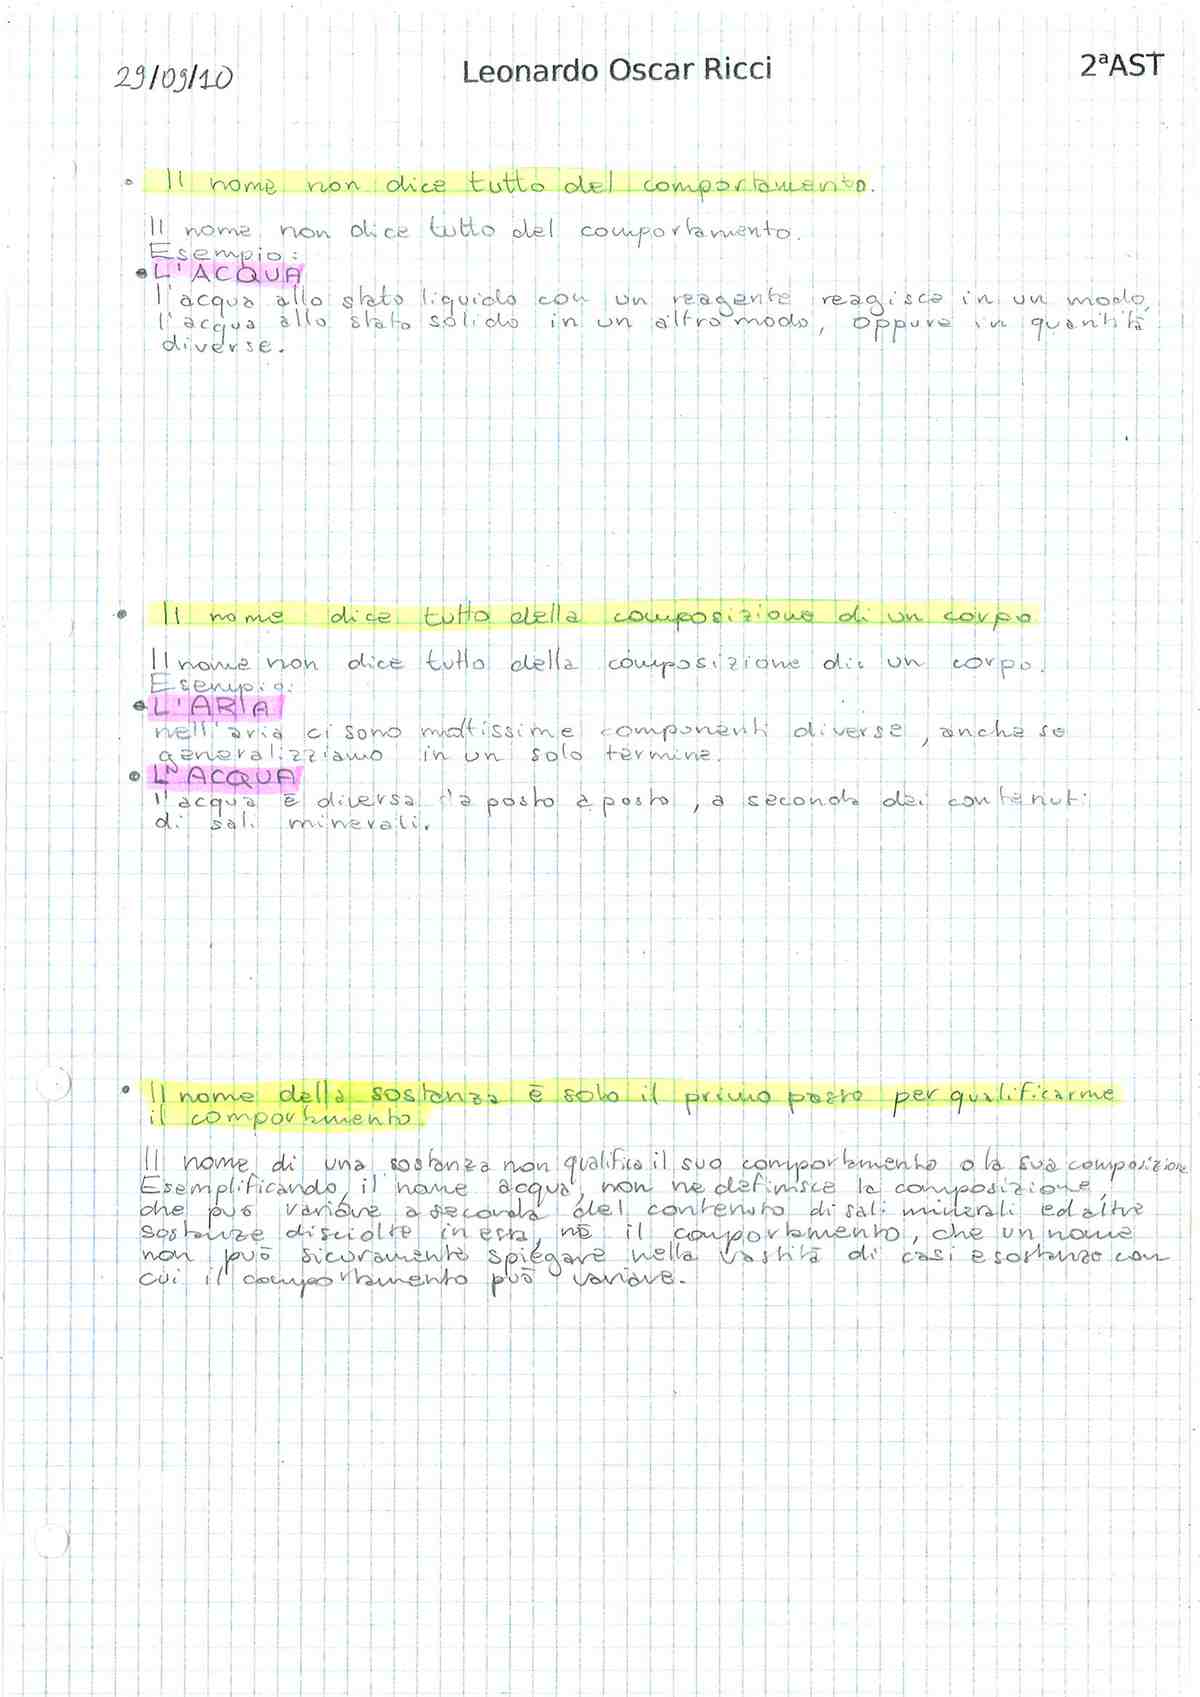 29/09/10 Leonardo Oscar Ricci 2ªAST
• Il nome non dice tutto del comportamento.
Il nome non dice tutto del comportamento.
Esempio:
• L'ACQUA
l'acqua allo stato liquido con un reagente reagisce in un modo,
l'acqua allo stato solido in un altro modo, oppure in quantità
diverse.
• Il nome dice tutto della composizione di un corpo
Il nome non dice tutto della composizione di un corpo.
Esempio:
• L'ARIA
nell'aria ci sono moltissime componenti diverse, anche se
generalizziamo in un solo termine.
• L'ACQUA
l'acqua è diversa da posto a posto, a seconda dei contenuti
di sali minerali.
• Il nome della sostanza è solo il primo passo per qualificarme
il comportamento.
Il nome di una sostanza non qualifica il suo comportamento o la sua composizione
Esemplificando, il nome acqua, non ne definisce la composizione,
che può variare a seconda del contenuto di sali minerali ed altre
sostanze disciolte in essa, nè il comportamento, che un nome
non può sicuramente spiegare nella vastità di casi e sostanze con
cui il comportamento può variare.